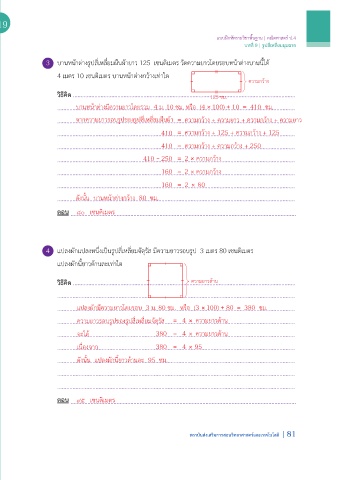 19
แบบฝึกทักษะวิชาพื้นฐาน | คณิตศาสตร์ ป.4
บทที่ 9 | รูปสี่เหลี่ยมมุมฉาก
3 บานหน้าต่างรูปสี่เหลี่ยมผืนผ้ายาว 125 เซนติเมตร วัดความยาวโดยรอบหน้าต่างบานนี้ได้
4 เมตร 10 เซนติเมตร บานหน้าต่างกว้างเท่าใด
ความกว้าง
125 ซม.
วิธีคิด
บานหน้าต่างมีความยาวโดยรอบ 4 ม. 10 ซม. หรือ (4 × 100) + 10 = 410 ซม.
จากความยาวรอบรูปของรูปสี่เหลี่ยมผืนผ้า = ความกว้าง + ความยาว + ความกว้าง + ความยาว
410 = ความกว้าง + 125 + ความกว้าง + 125
410 = ความกว้าง + ความกว้าง + 250
410 - 250 = 2 × ความกว้าง
160 = 2 × ความกว้าง
160 = 2 × 80
ดังนั้น บานหน้าต่างกว้าง 80 ซม.
ตอบ ๘๐ เซนติเมตร
4 แปลงผักแปลงหนึ่งเป็นรูปสี่เหลี่ยมจัตุรัส มีความยาวรอบรูป 3 เมตร 80 เซนติเมตร
แปลงผักนี้ยาวด้านละเท่าใด
วิธีคิด
ความยาวด้าน
แปลงผักมีความยาวโดยรอบ 3 ม. 80 ซม. หรือ (3 × 100) + 80 = 380 ซม.
ความยาวรอบรูปของรูปสี่เหลี่ยมจัตุรัส = 4 × ความยาวด้าน
จะได้ 380 = 4 × ความยาวด้าน
เนื่องจาก 380 = 4 × 95
ดังนั้น แปลงผักนี้ยาวด้านละ 95 ซม.
ตอบ ๙๕ เซนติเมตร
สถาบันส่งเสริมการสอนวิทยาศาสตร์และเทคโนโลยี | 81